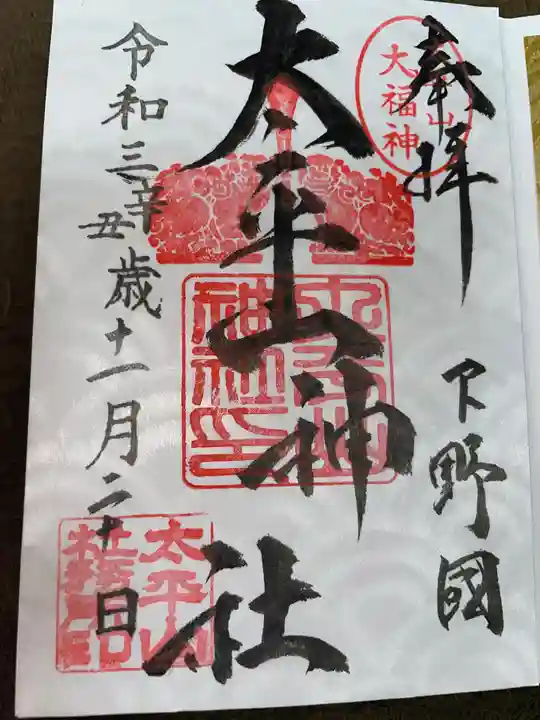 奉拝
下野國
大福神
太平山神社
太平山神社印
令和三辛丑歳十一月二十日
太平山社務所印